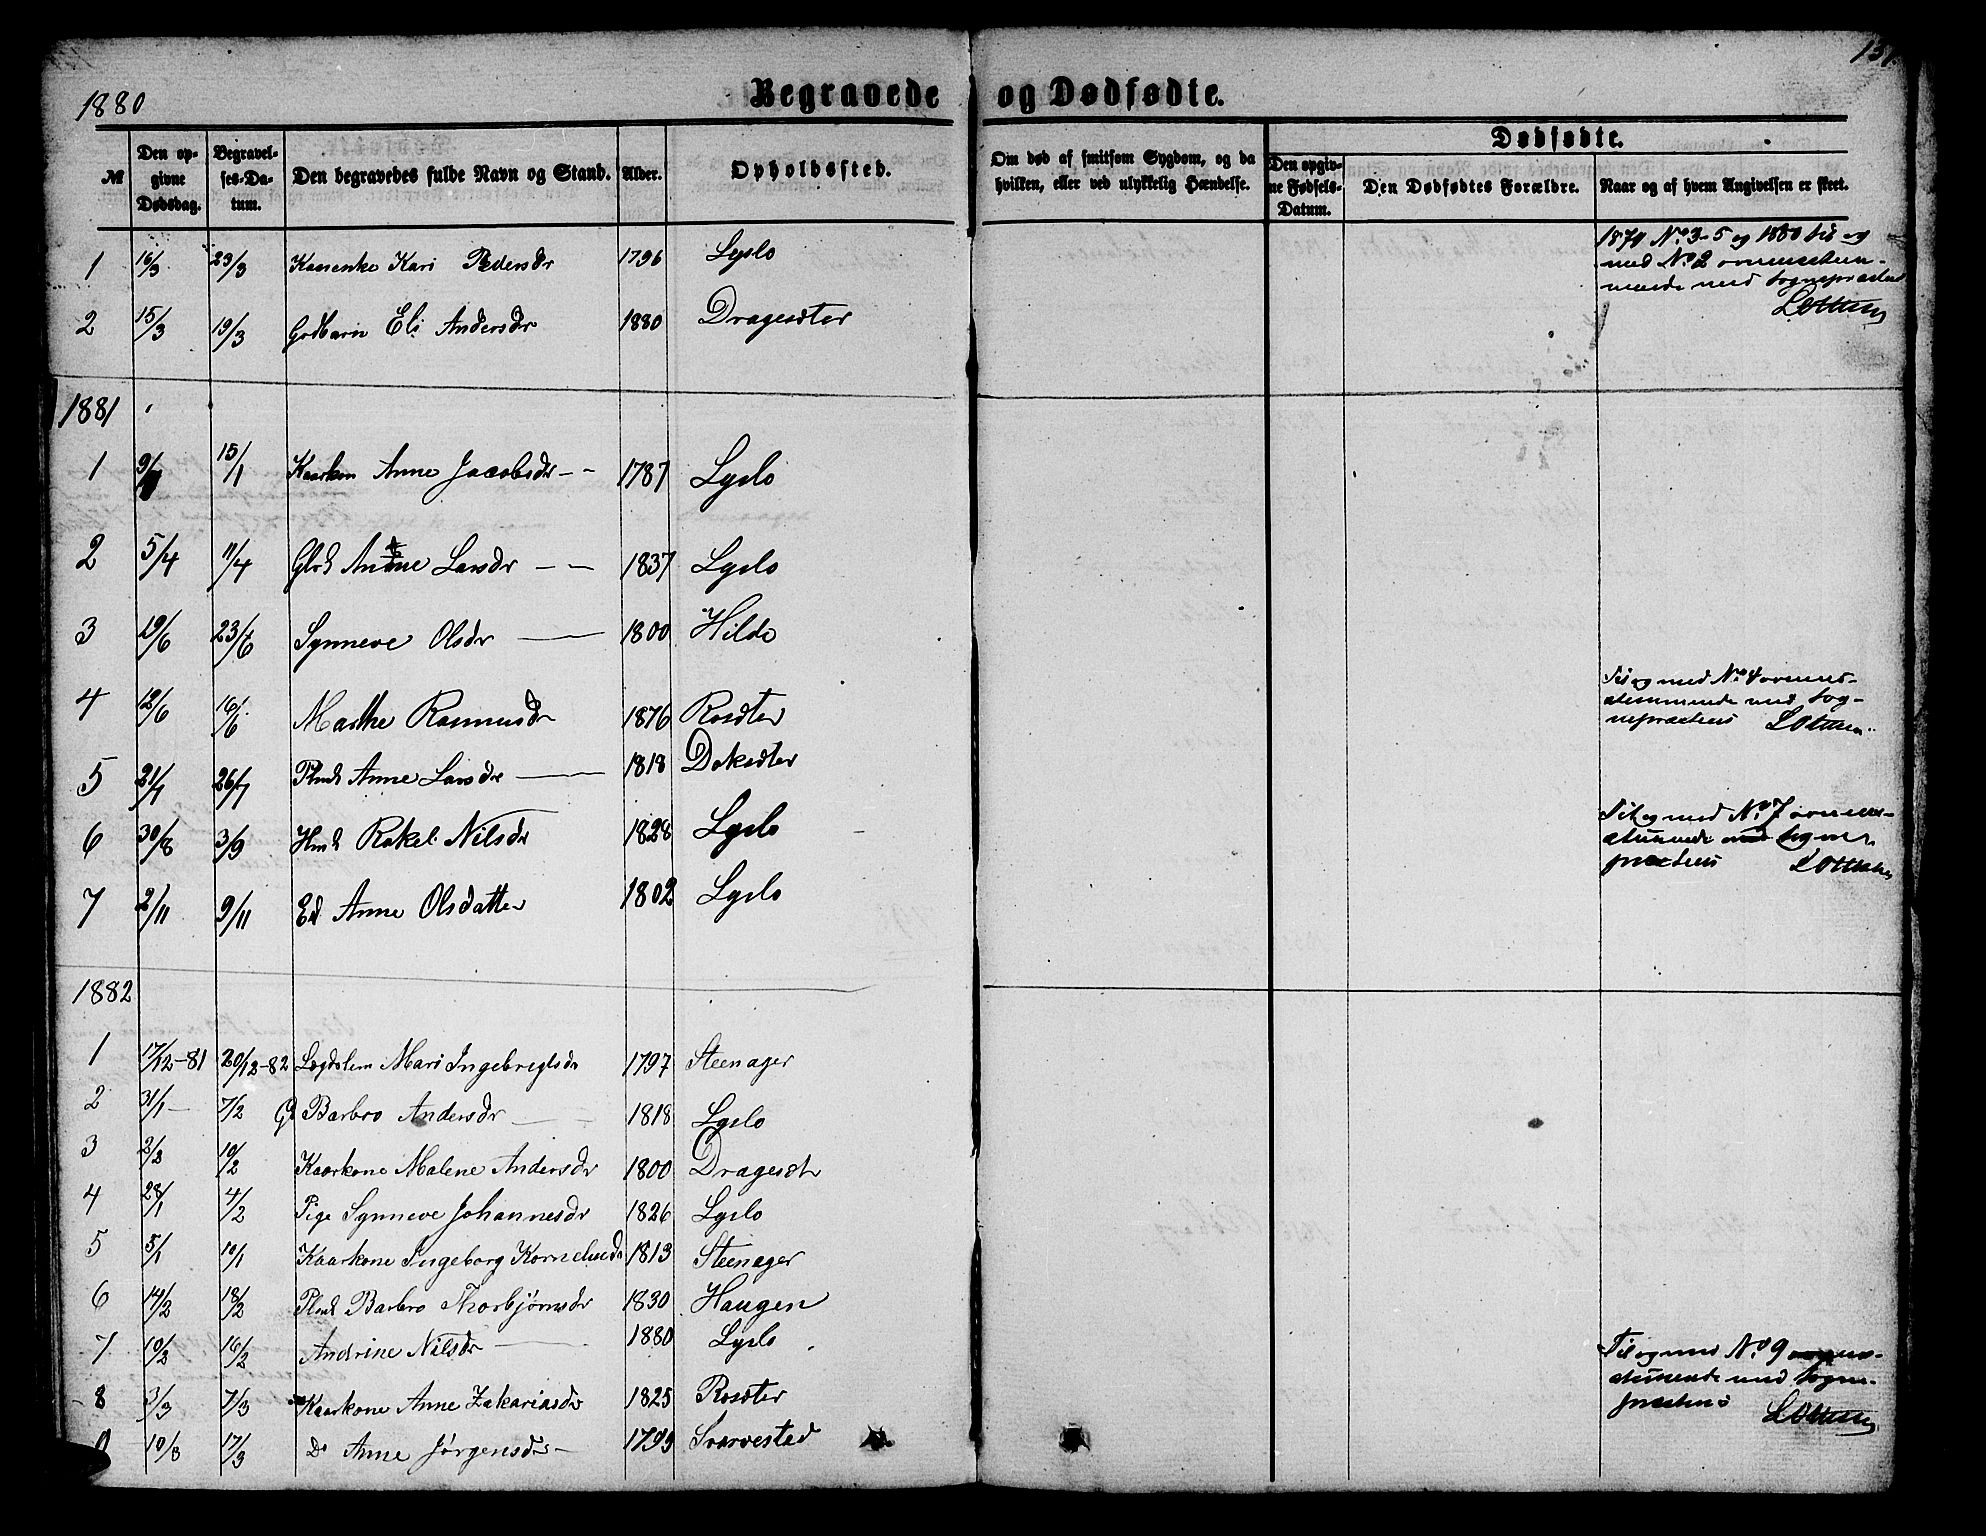 137.
1880
Begravede og Dødfødte.
№
Den opgivne Dødsdag.
Begravelses-Datum.
Den begravedes fulde Navn og Stand.
Alder.
Opholdssted.
Om død af smitsom Sygdom, og da hvilken, eller ved ulykkelig Hændelse.
Dødfødte.
Den opgivne Fødsels-Datum.
Den Dødfødtes Forældre.
Naar og af hvem Angivelsen er skeet.
1 16/3 23/3 Kari Pedersdr 1796 Lyslo
1879 No 3-5 og 1880 til og
med No 2 overensstem-
mende med Sognepræstens
2 15/3 19/3 Eli Andersdr 1880 Dragesæter
1881
1 9/1 15/1 Kaarkon Anne Jacobsdr 1787 Lyslo
2 5/4 11/4 Larsdr 1837 Lyslo
3 19/6 23/6 Synneve Olsdr 1800 Hilde
4 12/6 16/6 Marthe Rasmusdr 1876
Til og med No 4 overens-
stemmende med Sog-
nepræstens
5 21/7 26/7 Anne Larsdr 1818
6 30/8 3/9 Rakel Nilsdr 1828 Lyslo
Til og med No 7 overens-
stemmende med Sogne-
præstens
7 2/11 9/11 Anne Olsdatter 1802 Lyslo
1882
1 17/12-81 20/12-82 Lægdslem Mari Ingebregtsdr 1797 Steenager
2 31/1 7/2 Barbro Andersdr 1818 Lyslo
3 2/2 10/2 Kaarkone Malene Andersdr 1800 Dragesæt
4 28/1 4/2 Pige Synneve Johannesdr 1826 Lyslo
5 5/1 10/1 Kaarkone Ingeborg Korneliusdr 1813 Steenager
6 14/2 18/2 Barbro Thorbjørnsdr 1830 Haugen
7 10/2 16/2 Andrine Nilsdr 1880 Lyslo
Til og med No 9 overens-
stemmende med Sogne-
præstens
8 3/3 7/3 Kaarkone Anne Zakariasdr 1825
10/3 17/3 Do Anne Jørgensdr 1793 Svarvestad